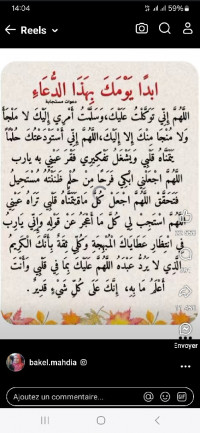 14:04
59%
Reels
ابدأ يَوْمَكَ بِهَذَا الدُّعَاءِ
دعوات مستجابة
اللَّهُمَّ إِنِّي تَوَكَّلْتُ عَلَيْكَ، وَسَلَّمْتُ أَمْرِي إِلَيْكَ لَا مَلْجَأَ
وَلَا مَنْجَا مِنْكَ إِلَّا إِلَيْكَ، اللَّهُمَّ إِنِّي أَسْتَوْدَعْتُكَ حُلْمًا
يَتَمَنَّاهُ قَلْبِي وَيَشْغَلُ تَفْكِيرِي فَقَرَّ عَيْنِي بِهِ يارب
اللَّهُمَّ اجْعَلْنِي ابْكِي فَرَحًا مِنْ حُلْمٍ ظَنَنْتُهُ مُسْتَحِيلُ
فَتَحَقَّقَ اللَّهُمَّ اجْعَلْ كُلَّ مَا يَتَمَنَّاهُ قَلْبِي تَرَاهُ عَيْنِي
اللَّهُمَّ اسْتَجِبْ لِي كُلَّ مَا أَعْجَزُ عَنْ قَوْلِهِ وَإِنِّي يَارَبُّ
فِي انْتِظَارِ عَطَايَاكَ الْمُبْهِجَةِ وَكُلِّي ثِقَةٌ بِأَنَّكَ الْكَرِيمُ
الَّذِي لَا يَرُدُّ عَبْدَهُ اللَّهُمَّ عَلَيْكَ بِمَا فِي قَلْبِي وَأَنْتَ
أَعْلَمُ مَا بِهِ، إِنَّكَ عَلَى كُلِّ شَيْءٍ قَدِيرٌ.
Envoyer
bakel.mahdia
Ajoutez un commentaire...